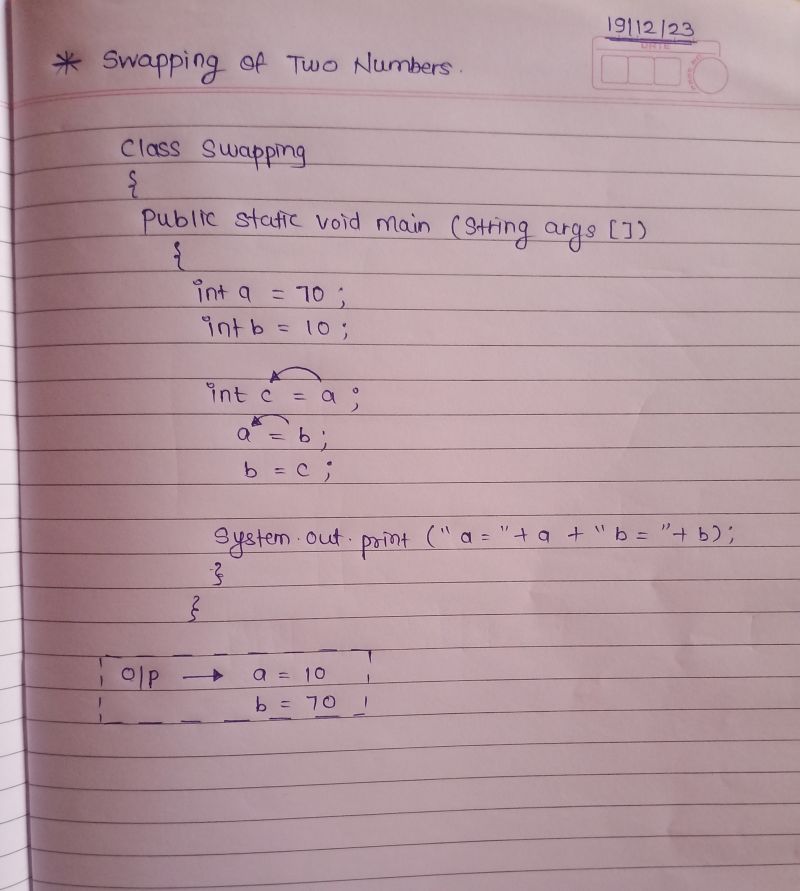 19/12/23
DATE
* Swapping of Two Numbers.
Class Swapping
{
Public static void main (String args [])
{
int a = 70 ;
int b = 10 ;
int c = a ;
a = b ;
b = c ;
System.out.print (" a = " + a + " b = " + b) ;
}
}
O/P → a = 10
b = 70